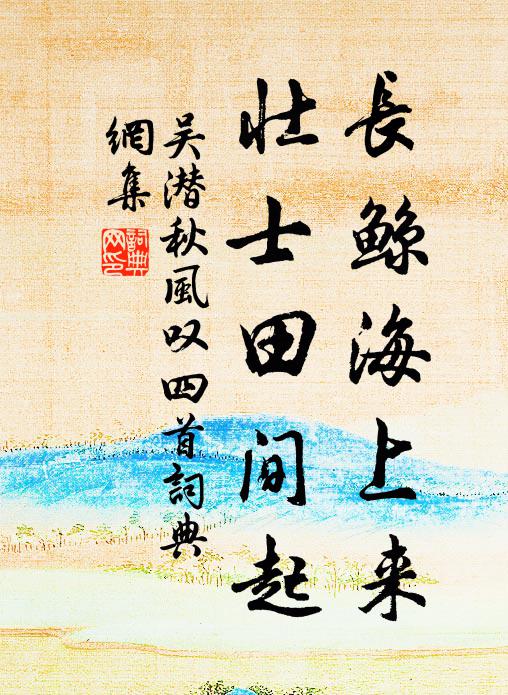 長鲸海上来
壮士田间起
吴潜秋風叹四首詞典
網集
詞典
网印